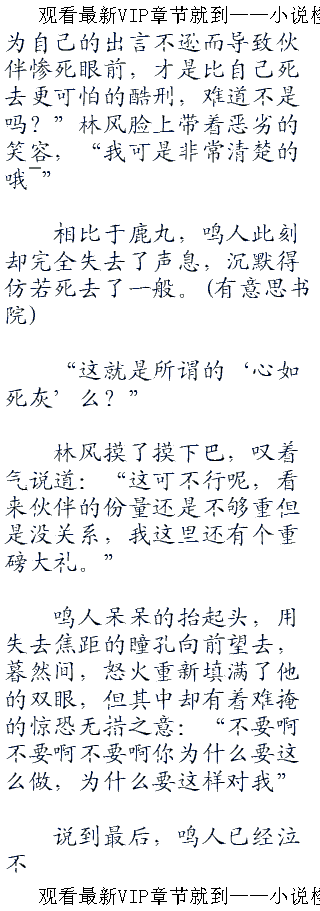 观看最新VIP章节就到——小说
为自己的出言不逊而导致伙
伴惨死眼前，才是比自己死
去更可怕的酷刑，难道不是
吗？”林风脸上带着恶劣的
笑容，“我可是非常清楚的
哦¯”
相比于鹿九，鸣人此刻
却完全失去了声息，沉默得
仿若死去了一般。(有意思书
院)
“这就是所谓的‘心如
死灰’么？”
林风摸了摸下巴，叹着
气说道：“这可不行呢，看
来伙伴的份量还是不够重但
是没关系，我这里还有个重
磅大礼。”
鸣人呆呆的抬起头，用
失去焦距的瞳孔向前望去，
蓦然间，怒火重新填满了他
的双眼，但其中却有着难掩
的惊恐无措之意：“不要啊
不要啊不要啊你为什么要这
么做，为什么要这样对我”
说到最后，鸣人已经泣
不
观看最新VIP章节就到——小说